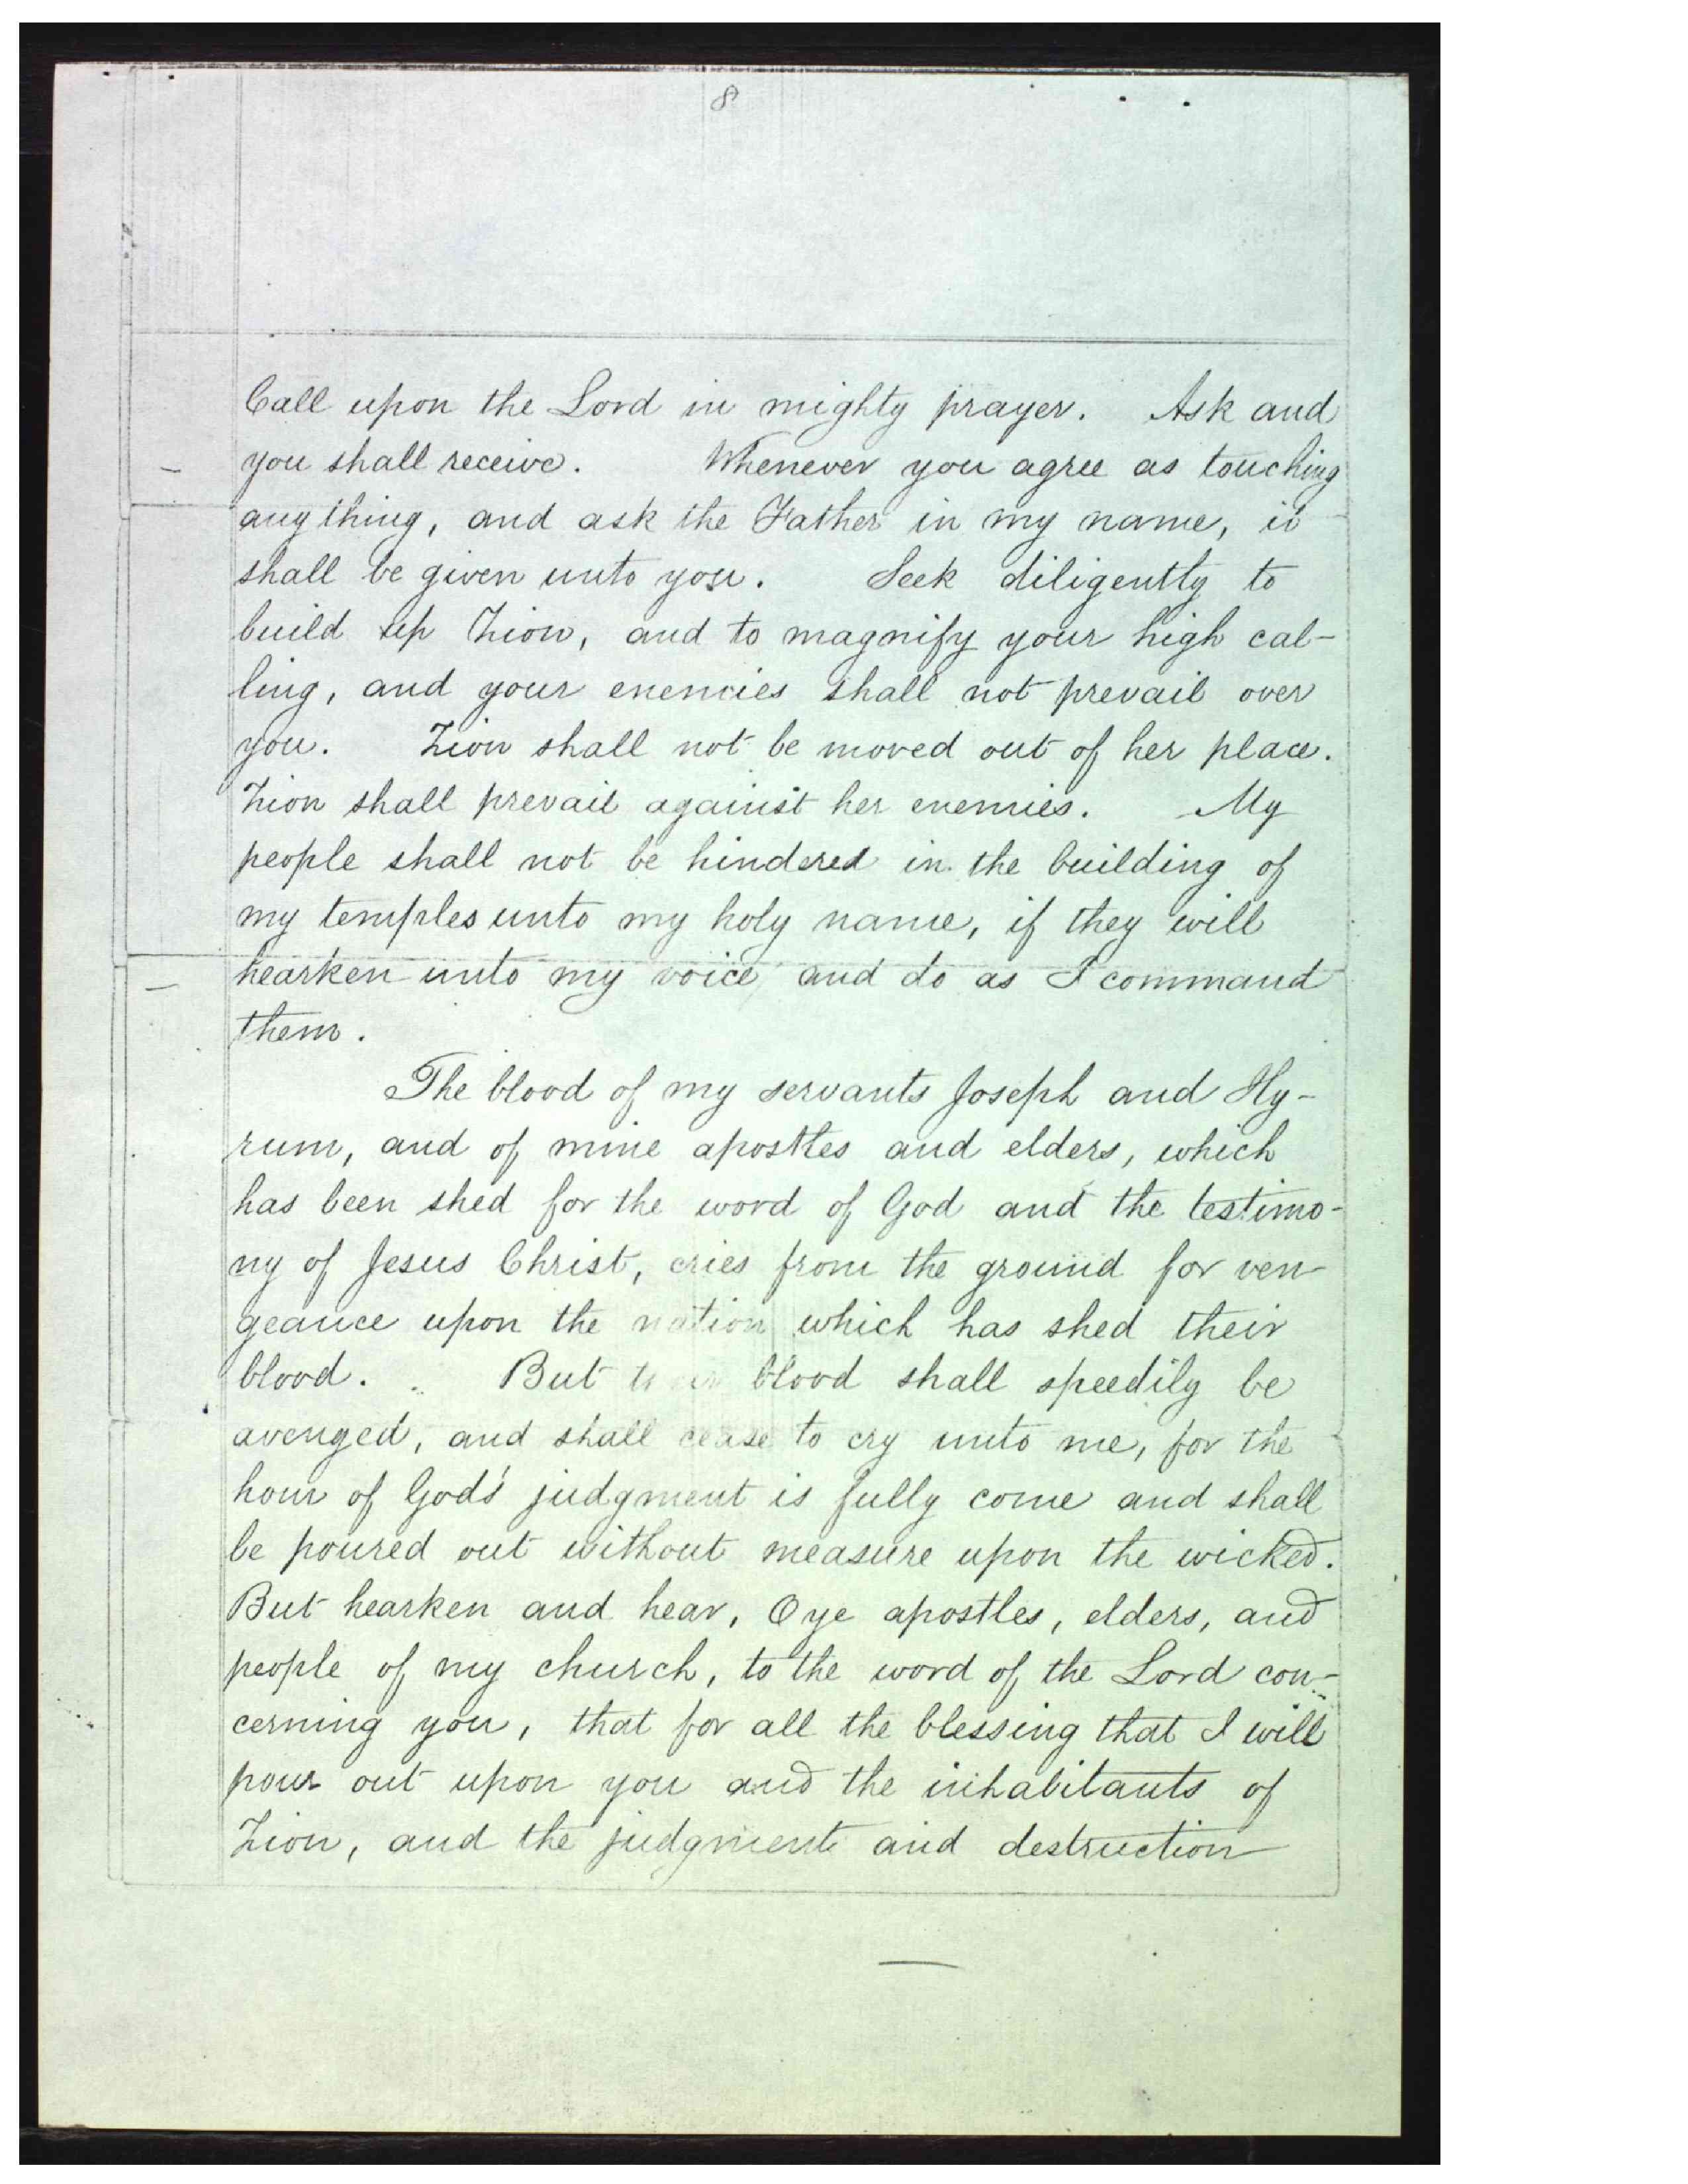 8
Call upon the Lord in mighty prayer. Ask and
you shall receive. Whenever you agree as touching
any thing, and ask the Father in my name, it
shall be given unto you. Seek diligently to
build up Zion, and to magnify your high cal-
ling, and your enemies shall not prevail over
you. Zion shall not be moved out of her place.
Zion shall prevail against her enemies. My
people shall not be hindered in the building of
my temples unto my holy name, if they will
hearken unto my voice and do as I command
them.
The blood of my servants Joseph and Hy-
rum, and of mine apostles and elders, which
has been shed for the word of God and the testimo-
ny of Jesus Christ, cries from the ground for ven-
geance upon the nation which has shed their
blood. But their blood shall speedily be
avenged, and shall cease to cry unto me, for the
hour of God's judgment is fully come and shall
be poured out without measure upon the wicked.
But hearken and hear, O ye apostles, elders, and
people of my church, to the word of the Lord con-
cerning you, that for all the blessing that I will
pour out upon you and the inhabitants of
Zion, and the judgments and destruction